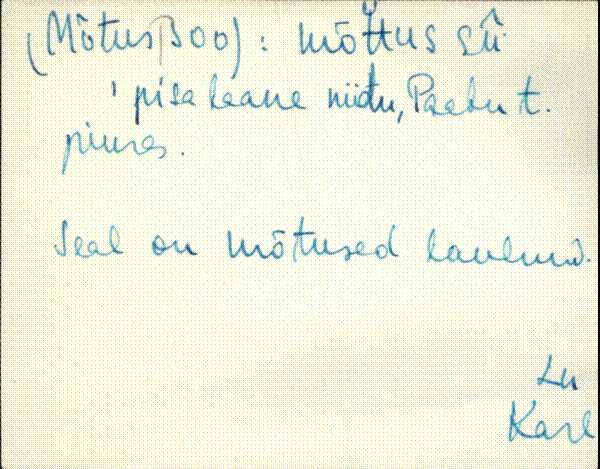 (Mõtus|soo) : mõttus sū
' pisa leane niidu, Paebu t.
piires.
Seal on mõtused laulnud.
Lu
Karl